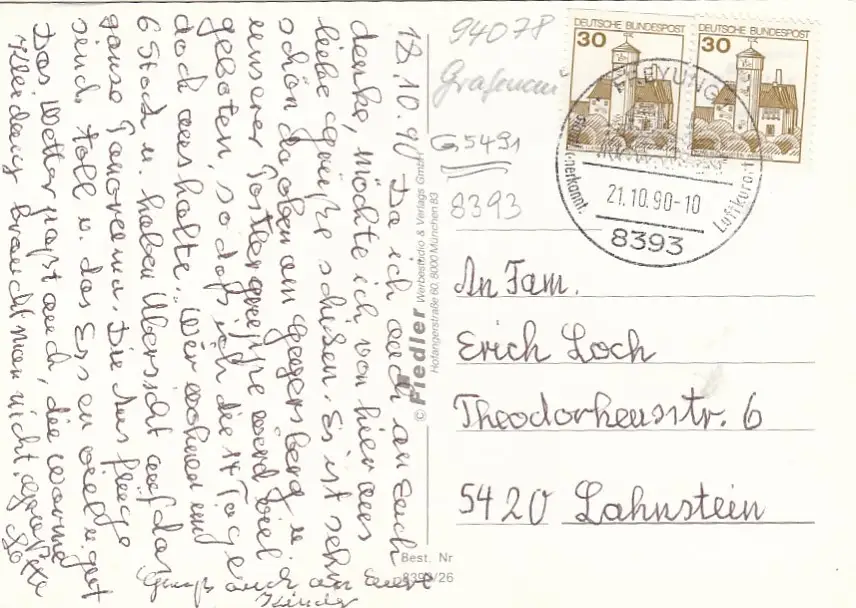 18.10.90 Da ich auch an Euch
denke, möchte ich von hier aus
liebe Grüße schicken. Es ist sehr
schön da oben am Geyersberg u.
unserer Postlergruppe wird viel
geboten, so daß ich die 14 Tage
doch aushalte. Wir wohnen im
6 Stock u. haben Übersicht auf das
ganze Panorama. Die Ausflüge
sind toll u. das Essen viel u. gut
Das Wetter paßt auch, die warme
Kleidung braucht man nicht. Grüße
Lotte
Gruß auch an Eure
Kinder
© Fiedler Werbestudio & Verlags GmbH
Hofangerstraße 60, 8000 München 83
Best. Nr
8393/26
94078
Grafenau
G 5491
8393
DEUTSCHE BUNDESPOST
30
DEUTSCHE BUNDESPOST
30
FREYUNG
anerkannt.
Luftkurort
21.10.90-10
8393
An Fam.
Erich Loch
Theodorheusstr. 6
5420 Lahnstein